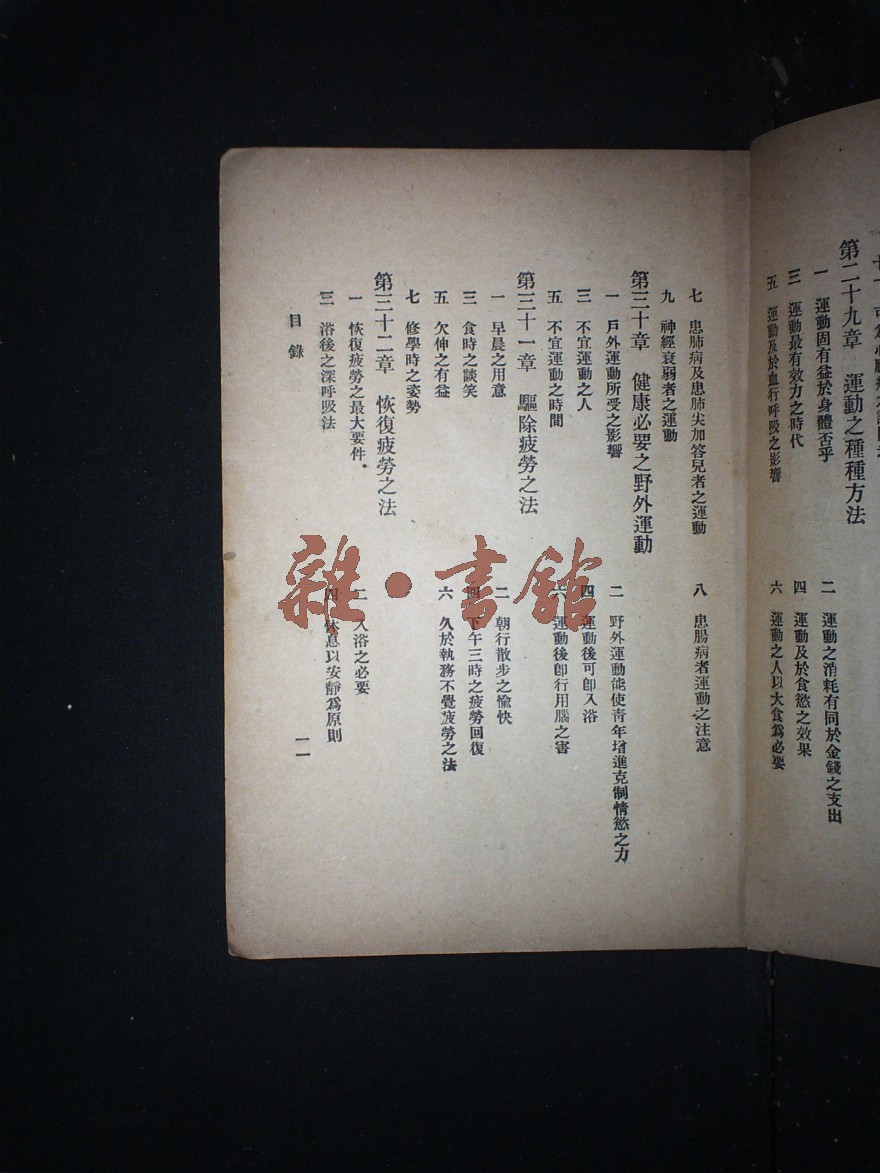 第二十九章　運動之種種方法
一　運動固有益於身體否乎
二　運動之消耗有同於金錢之支出
三　運動最有效力之時代
四　運動及於食慾之效果
五　運動及於血行呼吸之影響
六　運動之人以大食爲必要
七　患肺病及患肺尖加答兒者之運動
八　患腸病者運動之注意
九　神經衰弱者之運動
第三十章　健康必要之野外運動
一　戶外運動所受之影響
二　野外運動能使靑年增進克制情慾之力
三　不宜運動之人
四　運動後可卽入浴
五　不宜運動之時間
六　運動後卽行用腦之害
第三十一章　驅除疲勞之法
一　早晨之用意
二　朝行散步之愉快
三　食時之談笑
四　下午三時之疲勞回復
五　欠伸之有益
六　久於執務不覺疲勞之法
七　修學時之姿勢
第三十二章　恢復疲勞之法
一　恢復疲勞之最大要件。
二　入浴之必要
三　浴後之深呼吸法
四　休息以安靜爲原則
目錄
一一
雜·書館